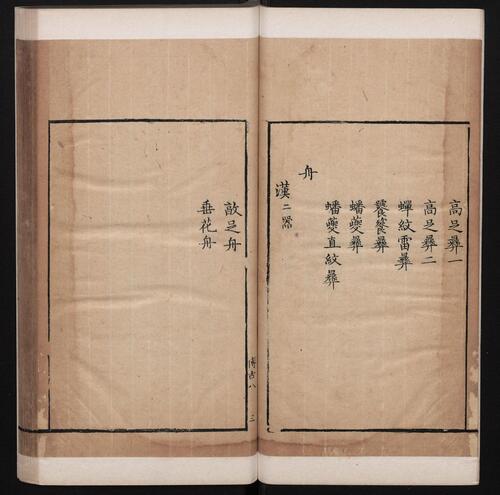 高足彝一
高足彝二
蟬紋雷彝
饕餮彝
蟠夔彝
蟠夔直紋彝
舟
漢二器
敦足舟
垂花舟
博古八
三